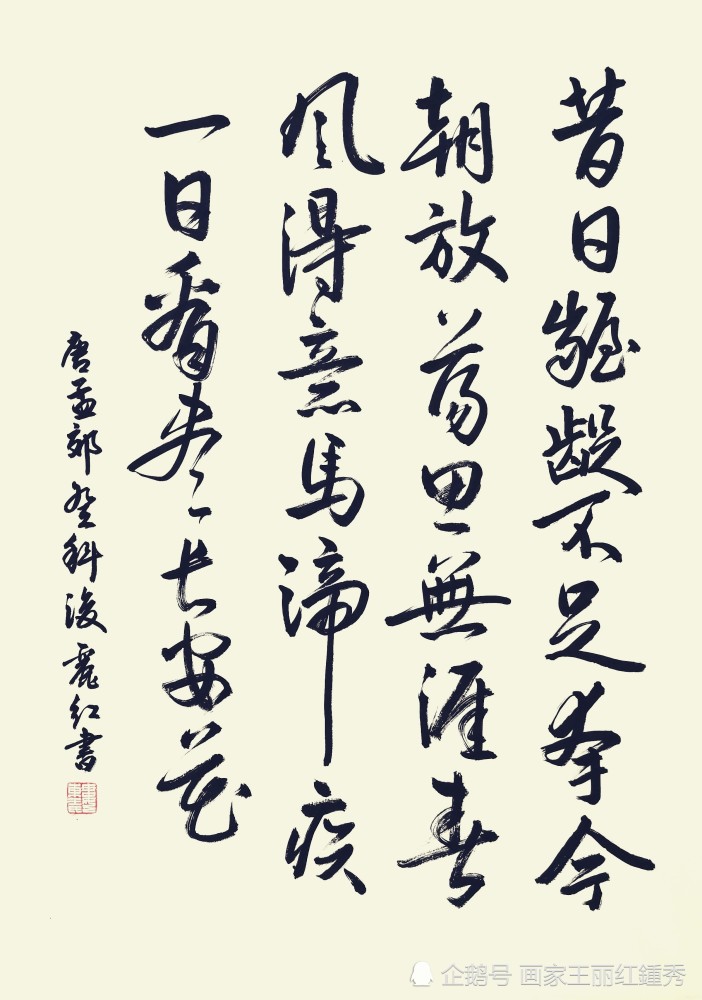 昔日齷齪不足夸今
朝放蕩思無涯春
風得意馬蹄疾
一日看盡長安花
唐孟郊登科後麗紅書
企鹅号 画家王丽红鍾秀